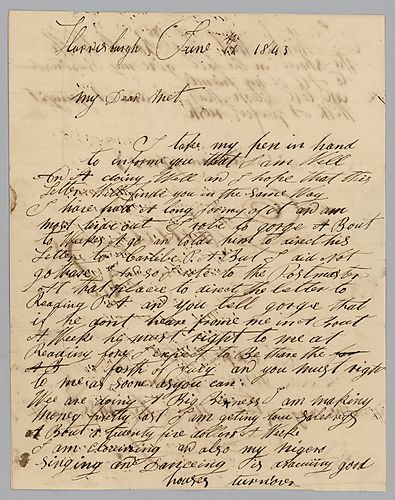 Harrisburgh June 1843
My Dear Met.
I take my pen in hand
to informe you that I am Well
And A doing Well and I hope that this
Letter Will finde you in the Same Way
I have had A long and am
most out I rote to gorge A Bout
A go an tolde hem to direct his
Letter to But I did not
go have and so I rote to the Postmaster
oft that place to direct the letter to
Reading PA and you tell gorge that
if he dont hear frome me in A bout
A Weeke he must right to me at
Reading for I expect to Be thare the
forth of July and you must right
to me as soon as you can:
We are doing A Big Bisness I am making
Money fast I am getting
A Bout A twenty five dollars A Weeke
I am Clowning and also my nigero
singing and Danceing Is drawing good
houses turnover